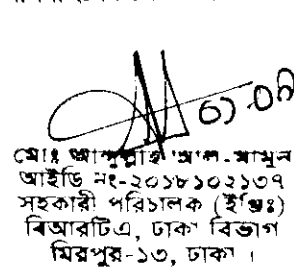 ০১.০৪
মোঃ আব্দুল্লাহ আল-মামুন
আইডি নং-২০১৮১০২১৩৭
সহকারী পরিচালক (ইঞ্জিঃ)
বিআরটিএ, ঢাকা বিভাগ
মিরপুর-১৩, ঢাকা ।